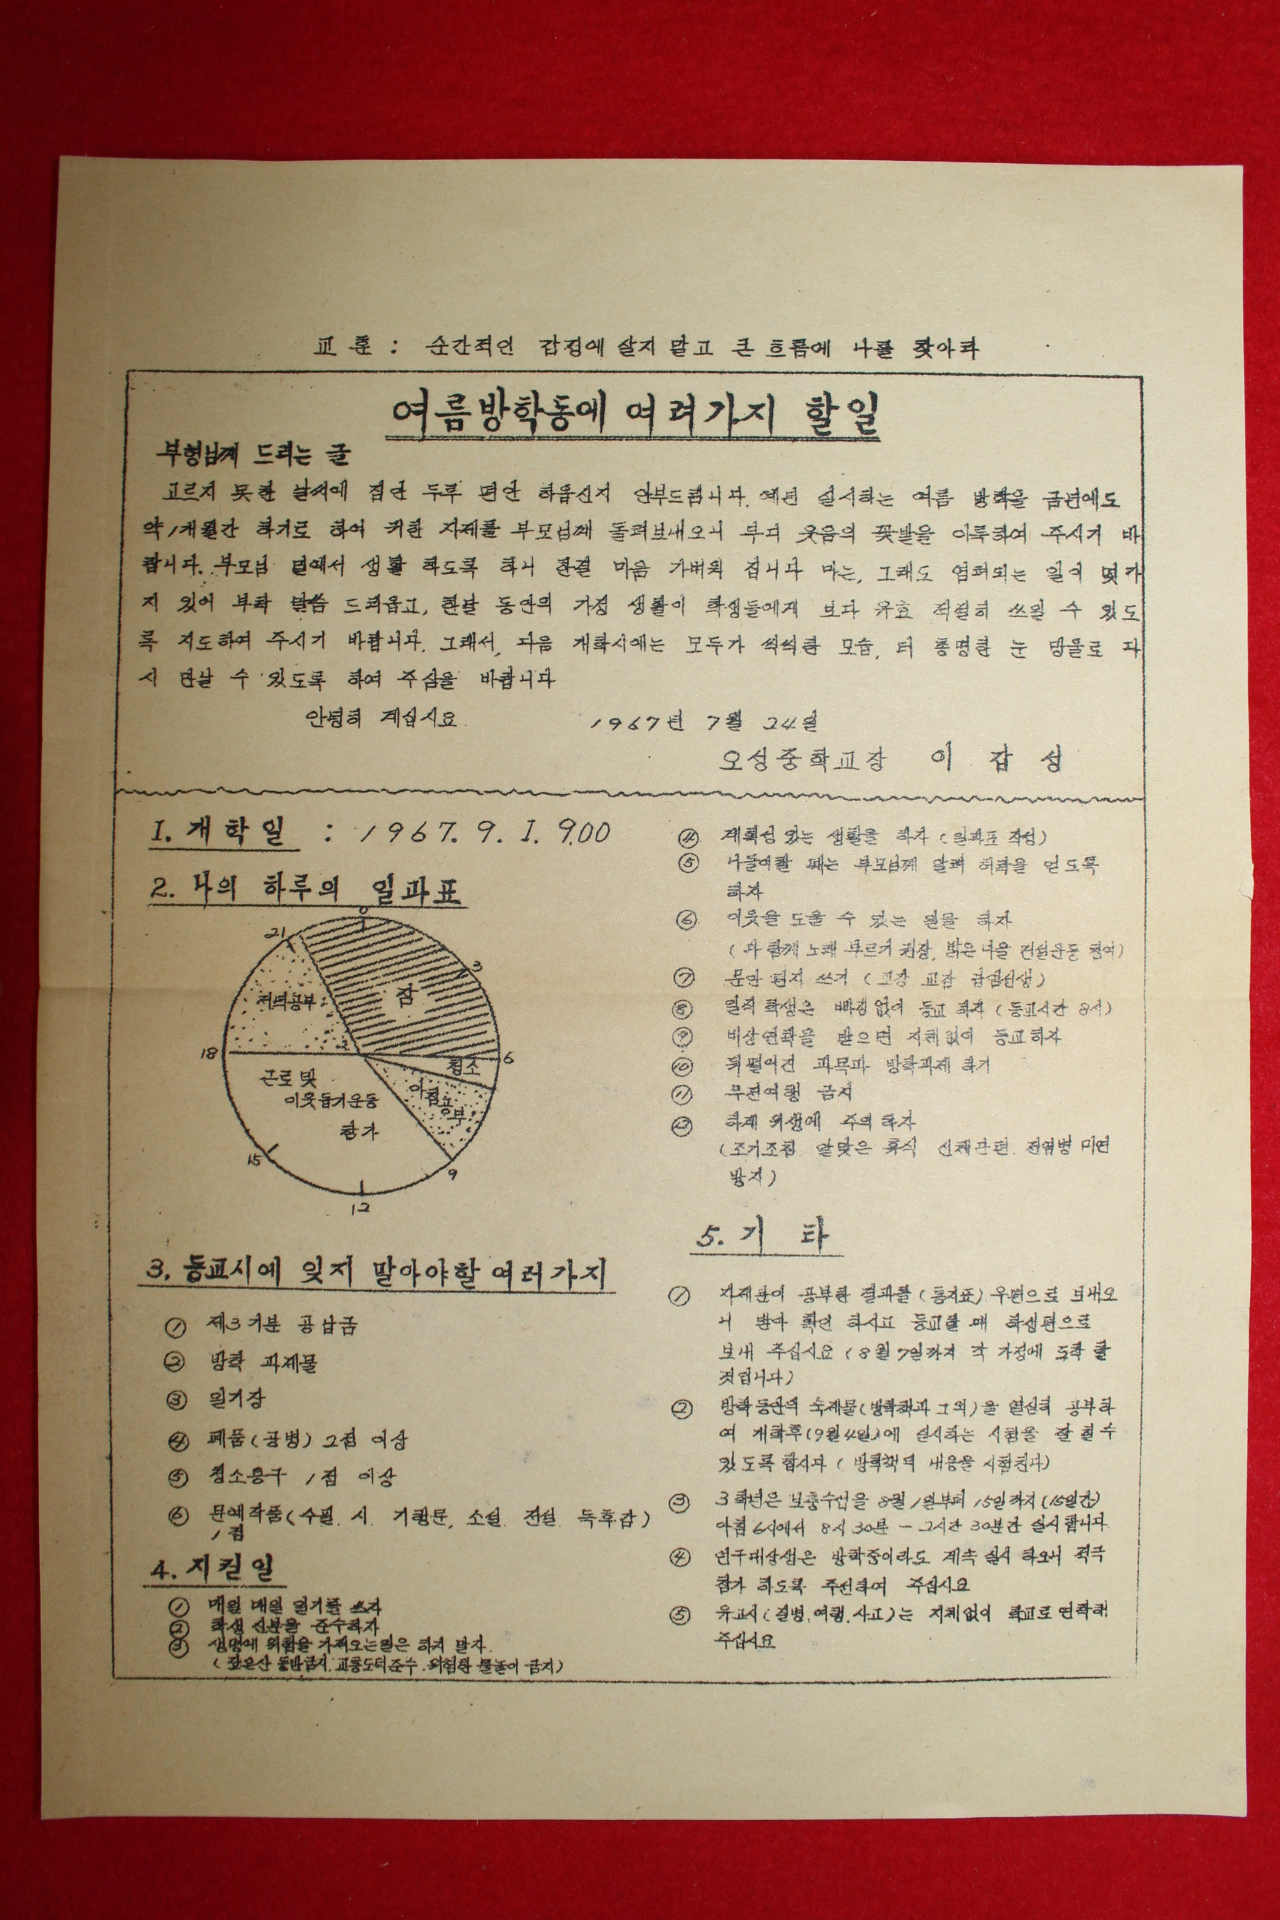 교 훈 : 순간적인 감정에 살지 말고 큰 흐름에 나를 찾아라
여름방학동에 여러가지 할일
부형님께 드리는 글
고르지 못한 날씨에 집안 두루 편안 하옵신지 안부드립니다. 예년 실시하는 여름 방학을 금년에도
약 1개월간 하기로 하여 귀한 자제를 부모님께 돌려보내오니 부디 웃음의 꽃밭을 이룩하여 주시기 바
랍니다. 부모님 덑에서 생활 하도록 하니 한결 마음 가벼워 집니다 마는, 그래도 염려되는 일이 몇가
지 있어 부탁 말씀 드리옵고, 한달 동안의 가정 생활이 학생들에게 보다 유효 적절히 쓰일 수 있도
록 지도하여 주시기 바랍니다. 그래서, 다음 개학시에는 모두가 씩씩한 모습, 더 총명한 눈 망울로 다
시 만날 수 있도록 하여 주심을 바랍니다
안녕히 계십시요 1967년 7월 24일
오성중학교장 이 갑 성
1. 개학일 : 1967. 9. 1. 9.00
2. 나의 하루의 일과표
0
21
3
잠
저녁공부
18
6
청소
아침공부
근로 및
이웃돕기운동
참가
15
9
12
3. 등교시에 잊지 말아야할 여러가지
① 제3기분 공납금
② 방학 과제물
③ 일기장
④ 폐품(공병) 2점 이상
⑤ 청소용구 1점 이상
⑥ 문예작품(수필. 시. 기행문, 소설. 전설. 독후감)
1점
4. 지킬일
① 매일 매일 일기를 쓰자
② 학생 신분을 준수하자
③ 생명에 위험을 가져오는일은 하지 말자
(깊은산 동반금지. 교통도덕준수. 위험한 물놀이 금지)
④ 계획성 있는 생활을 하자 (일과표 작성)
⑤ 나들이할 때는 부모님께 말해 허락을 얻도록
하자
⑥ 이웃을 도울 수 있는 일을 하자
(다 함께 노래 부르기 권장, 밝은 마을 건설운동 참여)
⑦ 문안 편지 쓰기 (교장 교감 담임선생)
⑧ 일직 학생은 빠짐없이 등교 하자 (등교시간 8시)
⑨ 비상연락을 받으면 지체없이 등교하자
⑩ 뒤떨어진 과목과 방학과제 하기
⑪ 무전여행 금지
⑫ 하계 위생에 주의 하자
(조기조침 알맞은 휴식 신체단련. 전염병 미연
방지)
5. 기 타
① 자제분이 공부한 결과를 (통지표) 우편으로 보내오
니 받아 확인 하시고 등교할 때 학생편으로
보내 주십시요 (8월 7일까지 각 가정에 도착 할
것입니다)
② 방학동안의 숙제물(방학책과 그외)을 열심히 공부하
여 개학후(9월 4일)에 실시하는 시험을 잘 칠 수
있도록 합시다 (방학책의 내용을 시험친다)
③ 3학년은 보충수업을 8월 1일부터 15일까지(15일간)
아침 6시에서 8시 30분 - 2시간 30분간 실시합니다
④ 연구대상생은 방학중이라도 계속 실시 하오니 적극
참가 하도록 주선하여 주십시요
⑤ 유고시(질병, 여행, 사고)는 지체없이 학교로 연락해
주십시요